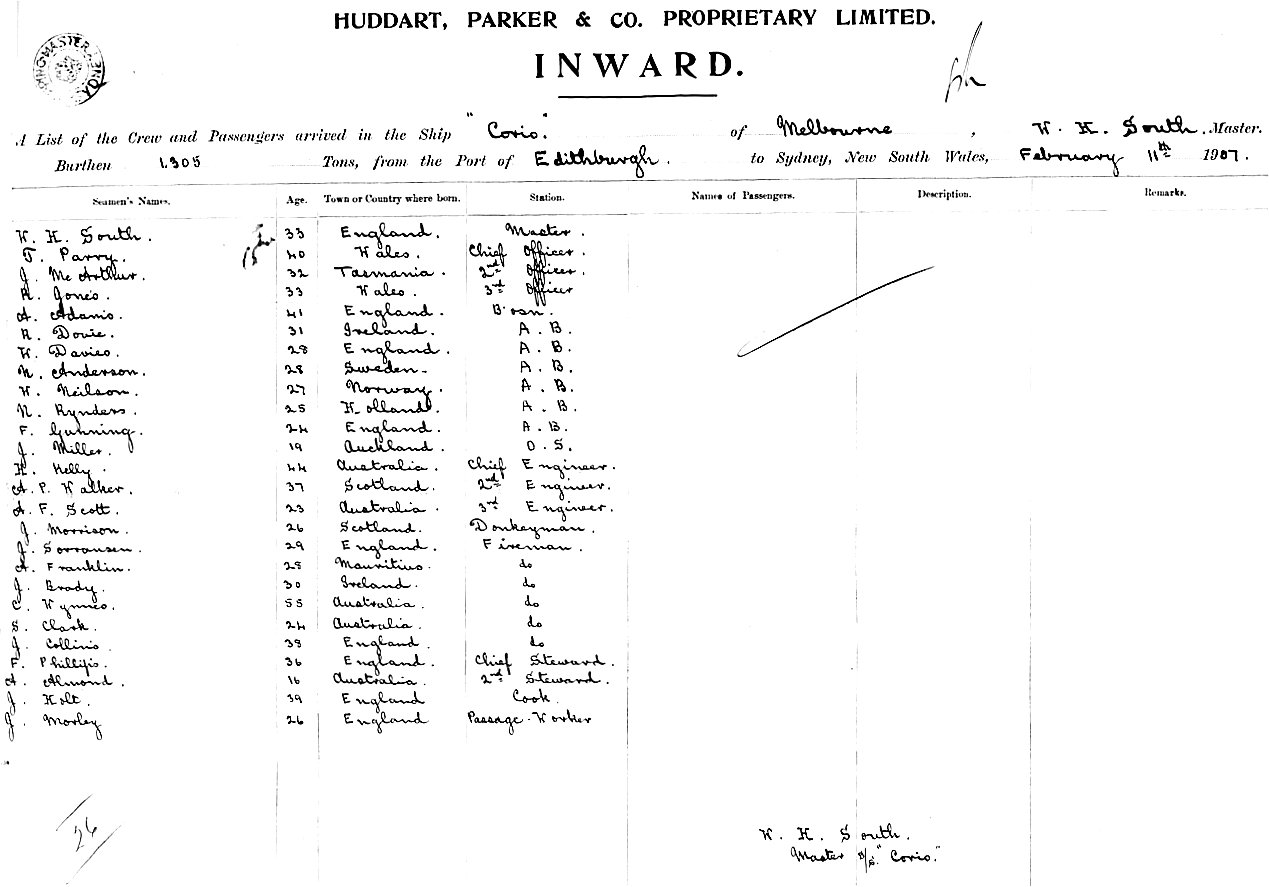 HUDDART, PARKER & CO. PROPRIETARY LIMITED.
INWARD.
A List of the Crew and Passengers arrived in the Ship "Corio." of Melbourne, W. H. South. Master.
Burthen 1.305 Tons, from the Port of Edithburgh. to Sydney, New South Wales, February 11th 1907.
Seamen's Names. Age. Town or Country where born. Station. Names of Passengers. Description. Remarks.
W. H. South. 33 England. Master.
T. Parry. 40 Wales. Chief Officer.
J. McArthur. 32 Tasmania. 2nd Officer.
R. Jones 33 Wales. 3rd Officer
A. Adams. 41 England. B'osn.
R. Dovie. 31 Ireland. A. B.
W. Davies. 28 England. A. B.
N. Anderson. 28 Sweden- A. B.
W. Neilson. 27 Norway. A. B.
N. Rynders. 25 Holland. A. B.
F. Gunning. 24 England. A. B.
J. Miller. 19 Auckland. O. S.
H. Kelly. 44 Australia. Chief Engineer.
A. P. Walker. 37 Scotland. 2nd Engineer.
A. F. Scott. 23 Australia. 3rd Engineer.
J. Morrison. 26 Scotland. Donkeyman.
J. Sorransen. 29 England. Fireman.
A. Franklin. 28 Mauritius. do
J. Brady. 30 Ireland. do
C. Wynnes. 55 Australia. do
S. Clark. 24 Australia. do
J. Collins. 38 England. do
F. Phillips. 36 England. Chief Steward.
A. Almond. 16 Australia. 2nd Steward.
J. Holt. 39 England Cook.
J. Morley 26 England Passage-Worker
26
W. H. South.
Master s/s. "Corio."